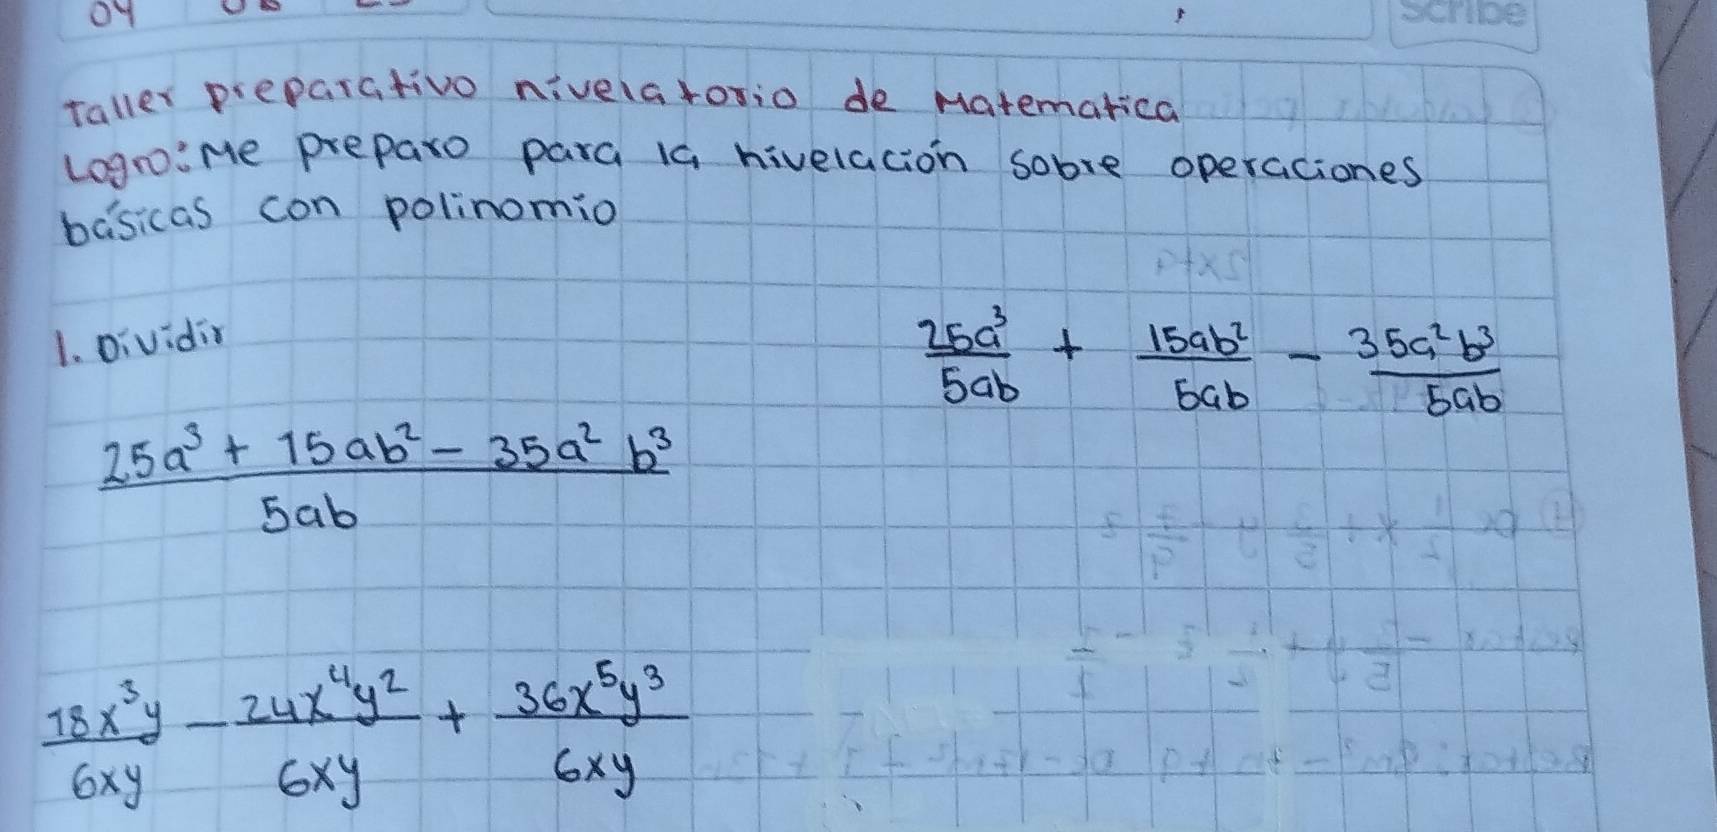 04
scribe
Taller preparativo nivelatorio de Matematica
Logro: Me preparo para la nivelación sobre operaciones
básicas con polinomio
1. Dividir
25a³/5ab + 15ab²/5ab - 35a²b³/5ab
25a³ + 15ab² - 35a² b³
5ab
18x³y/6xy - 24x⁴y²/6xy + 36x⁵y³/6xy